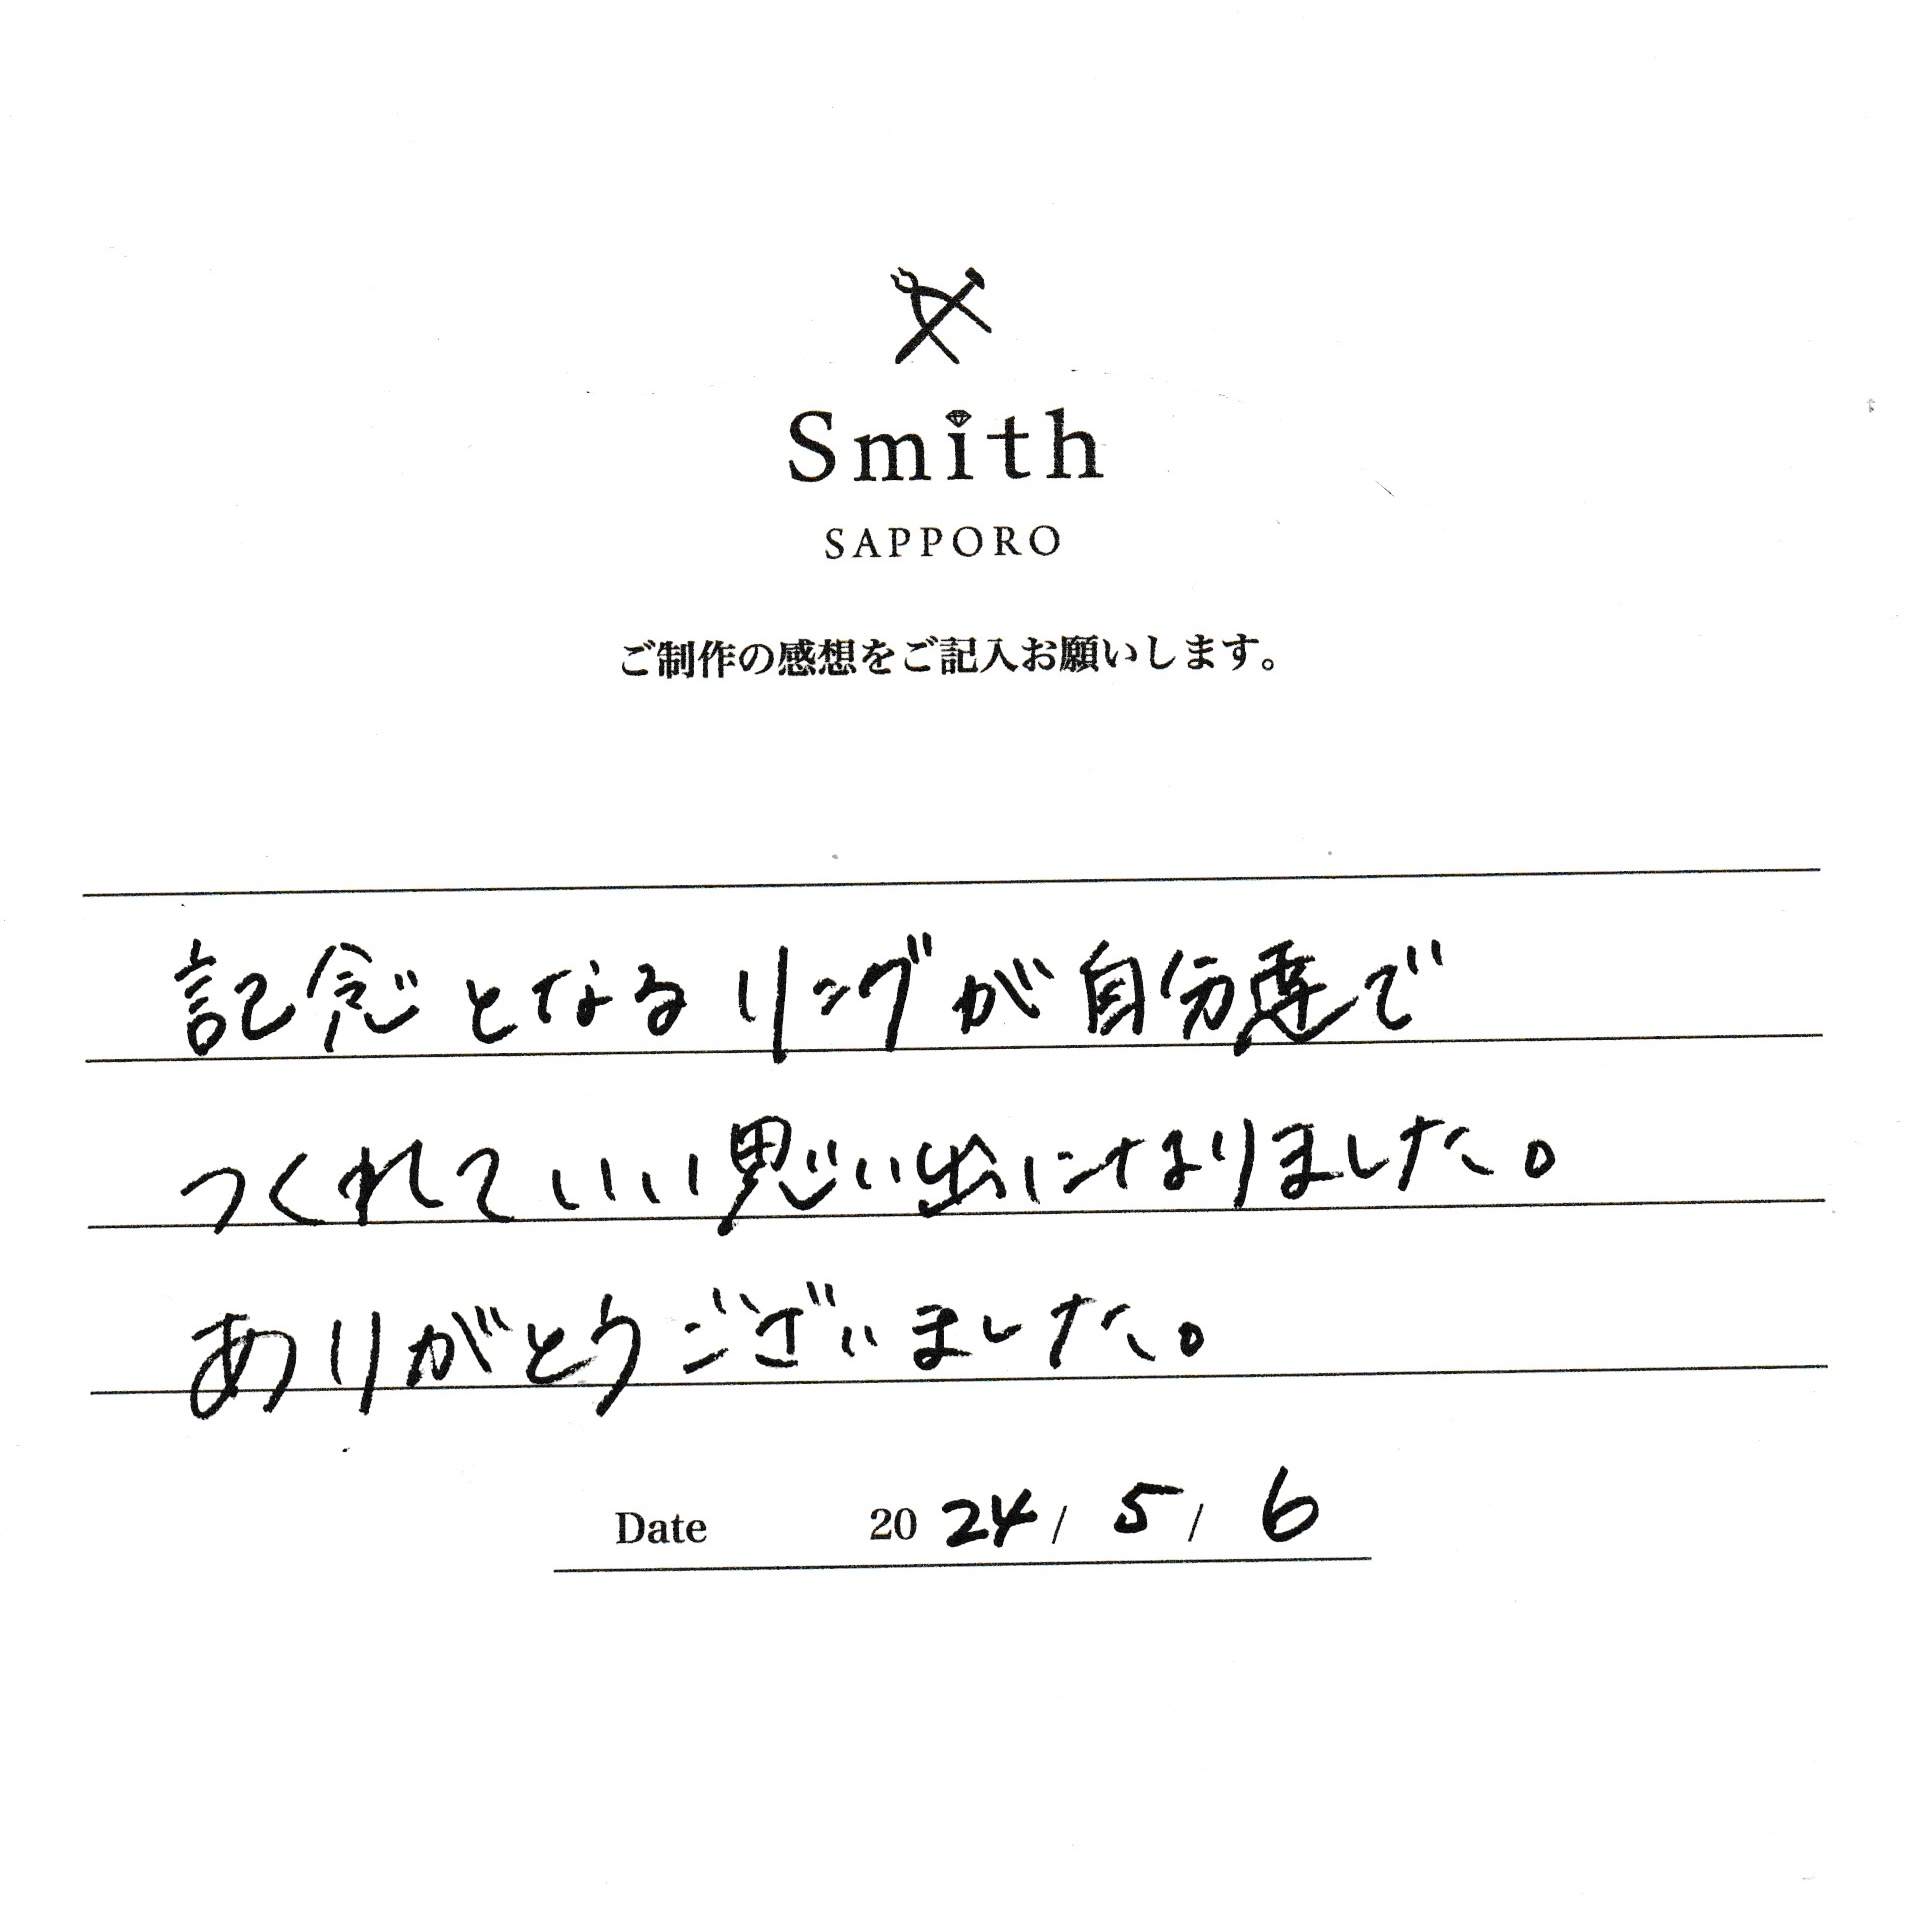 Smith
SAPPORO
ご制作の感想をご記入お願いします。
記念となるリングが自分達で
つくれていい思い出になりました。
ありがとうございました。
Date 2024/5/6